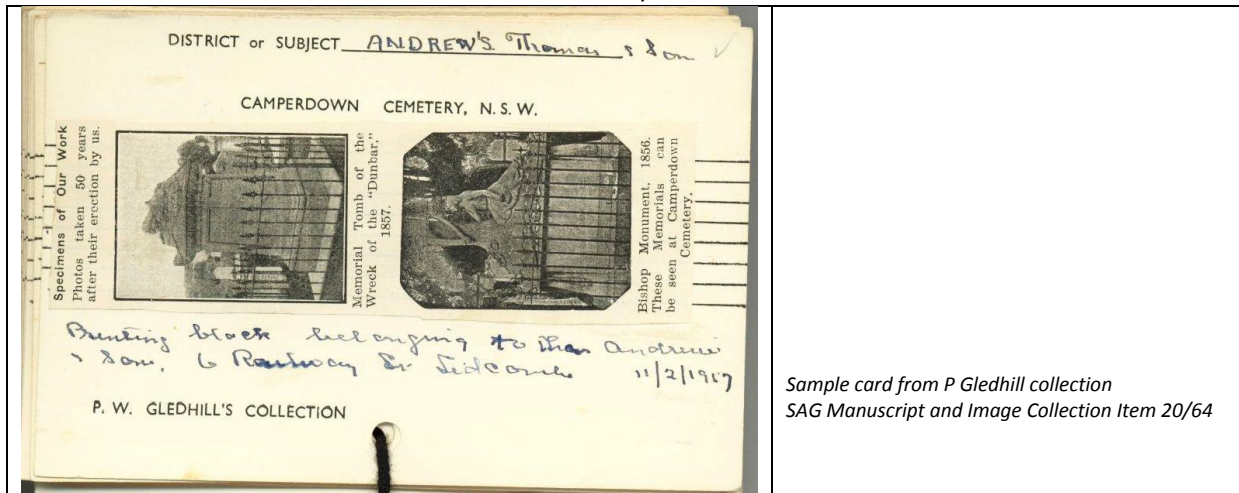 DISTRICT or SUBJECT ANDREW'S. Thomas & Son
CAMPERDOWN CEMETERY, N. S. W.
Specimens of Our Work
Photos taken 50 years
after their erection by us.
Memorial Tomb of the
Wreck of the "Dunbar,"
1857.
Bishop Monument, 1856.
These Memorials can
be seen at Camperdown
Cemetery.
block belonging to Andrews
& Son, 6 Railway St Lidcombe 11/2/1957
P. W. GLEDHILL'S COLLECTION
Sample card from P Gledhill collection
SAG Manuscript and Image Collection Item 20/64